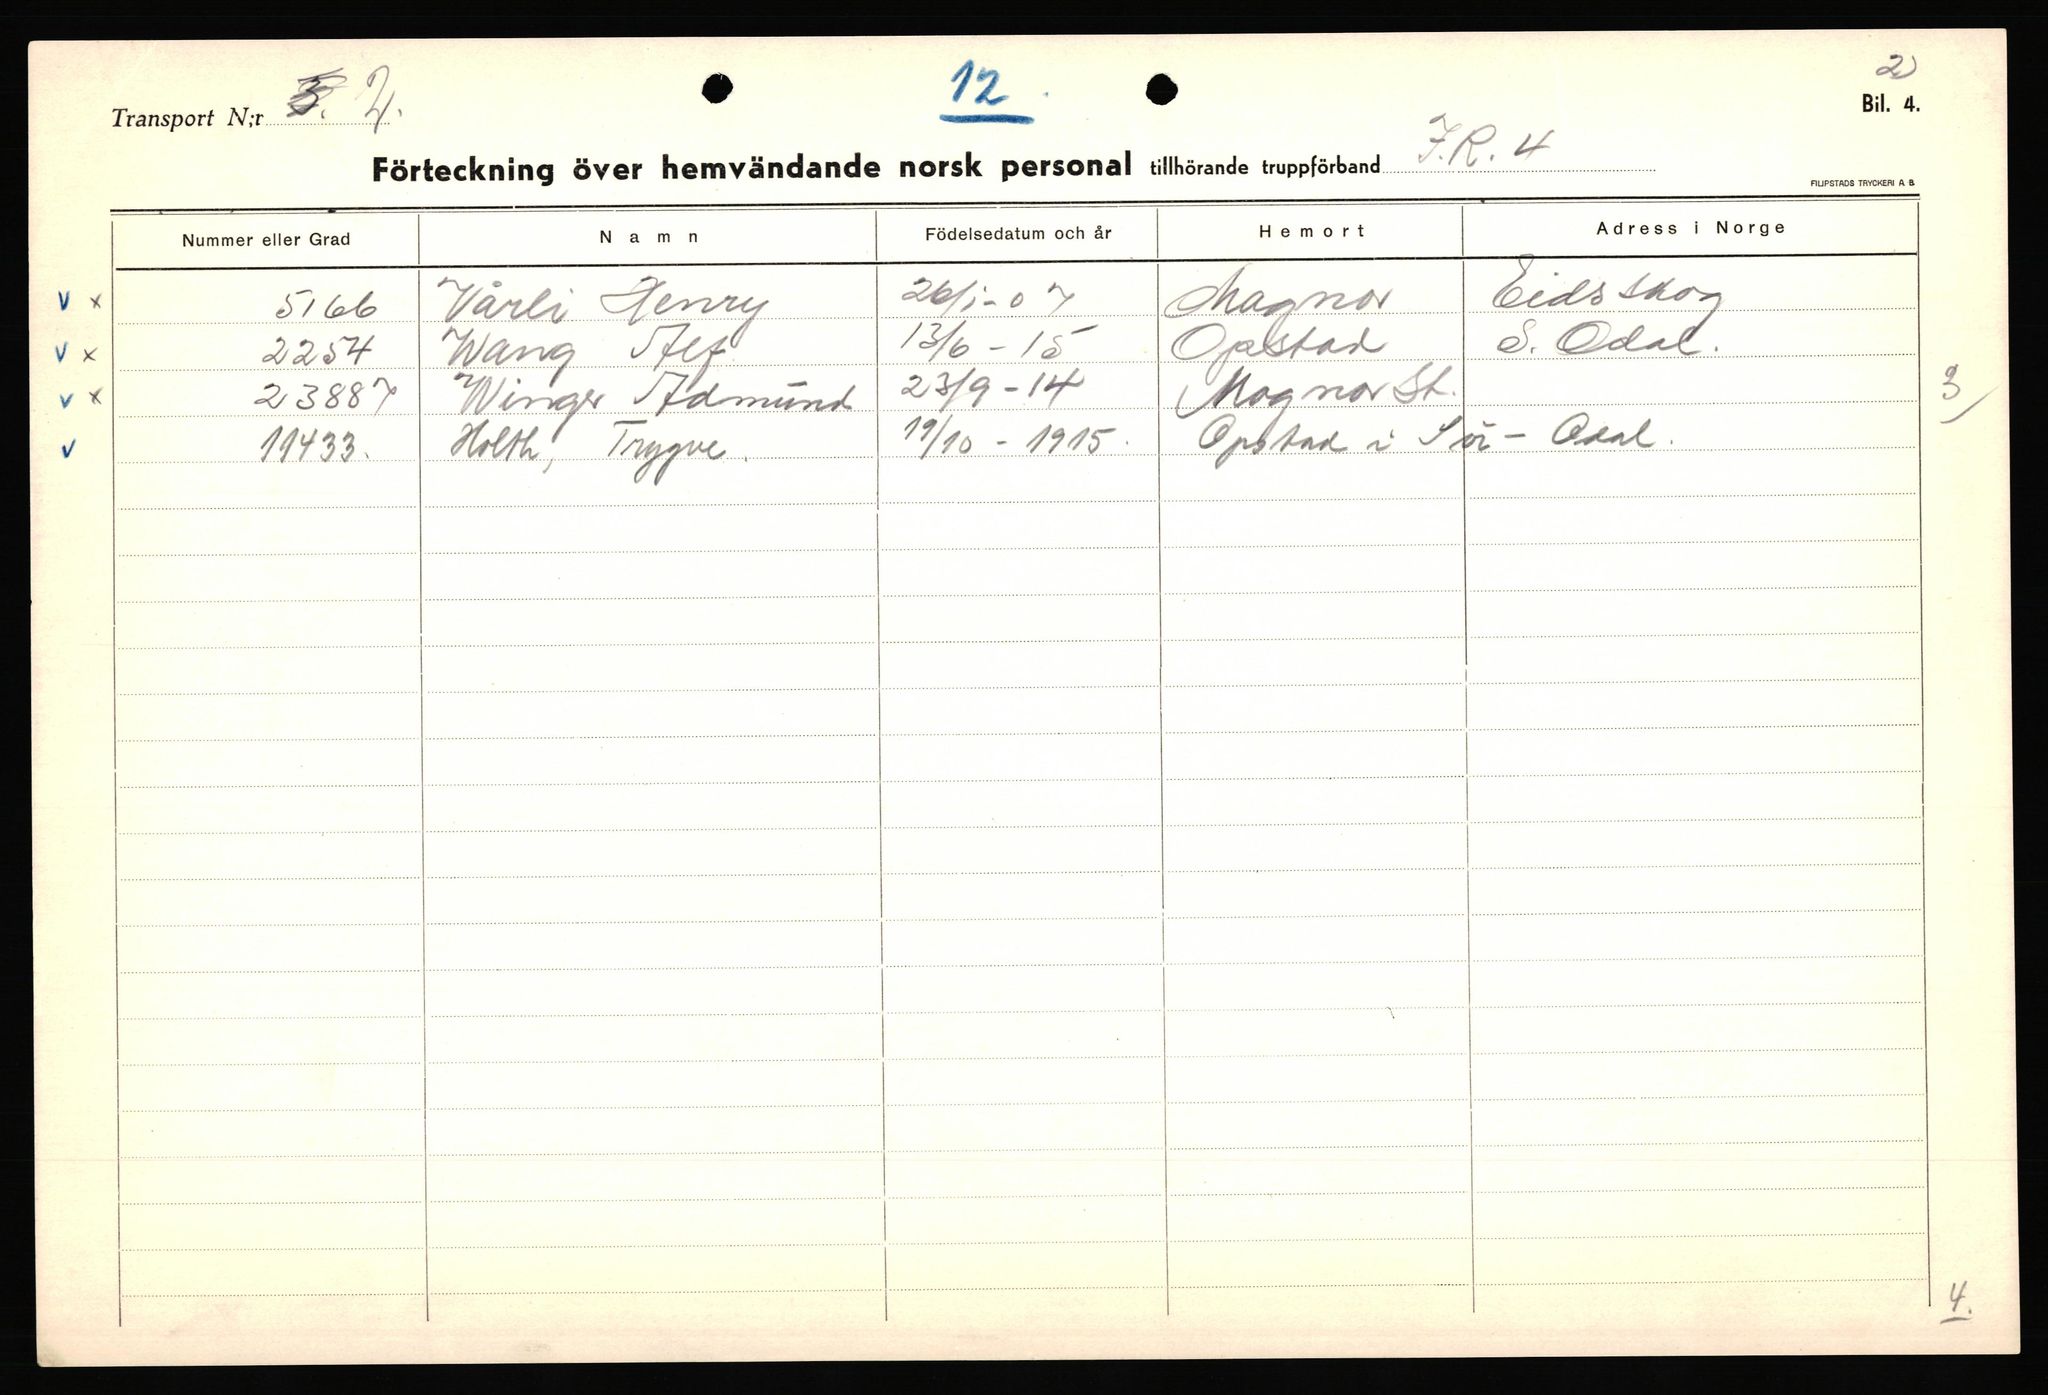 2)
12.
Transport N:r 2.
Bil. 4.
Förteckning över hemvändande norsk personal tillhörande truppförband J.R. 4
FILIPSTADS TRYCKERI A B
Nummer eller Grad Namn Födelsedatum och år Hemort Adress i Norge
v x 5166 Vårli Henry 26/1-07 Magnor Eidsskog
v x 2254 Wang Alf 13/6-15 Opstad S. Odal.
v x 23887 Winger Admund 23/9-14 Magnor St. 3/
v 11433. Holth, Trygve. 19/10-1915. Opstad i Sör-Odal.
4.